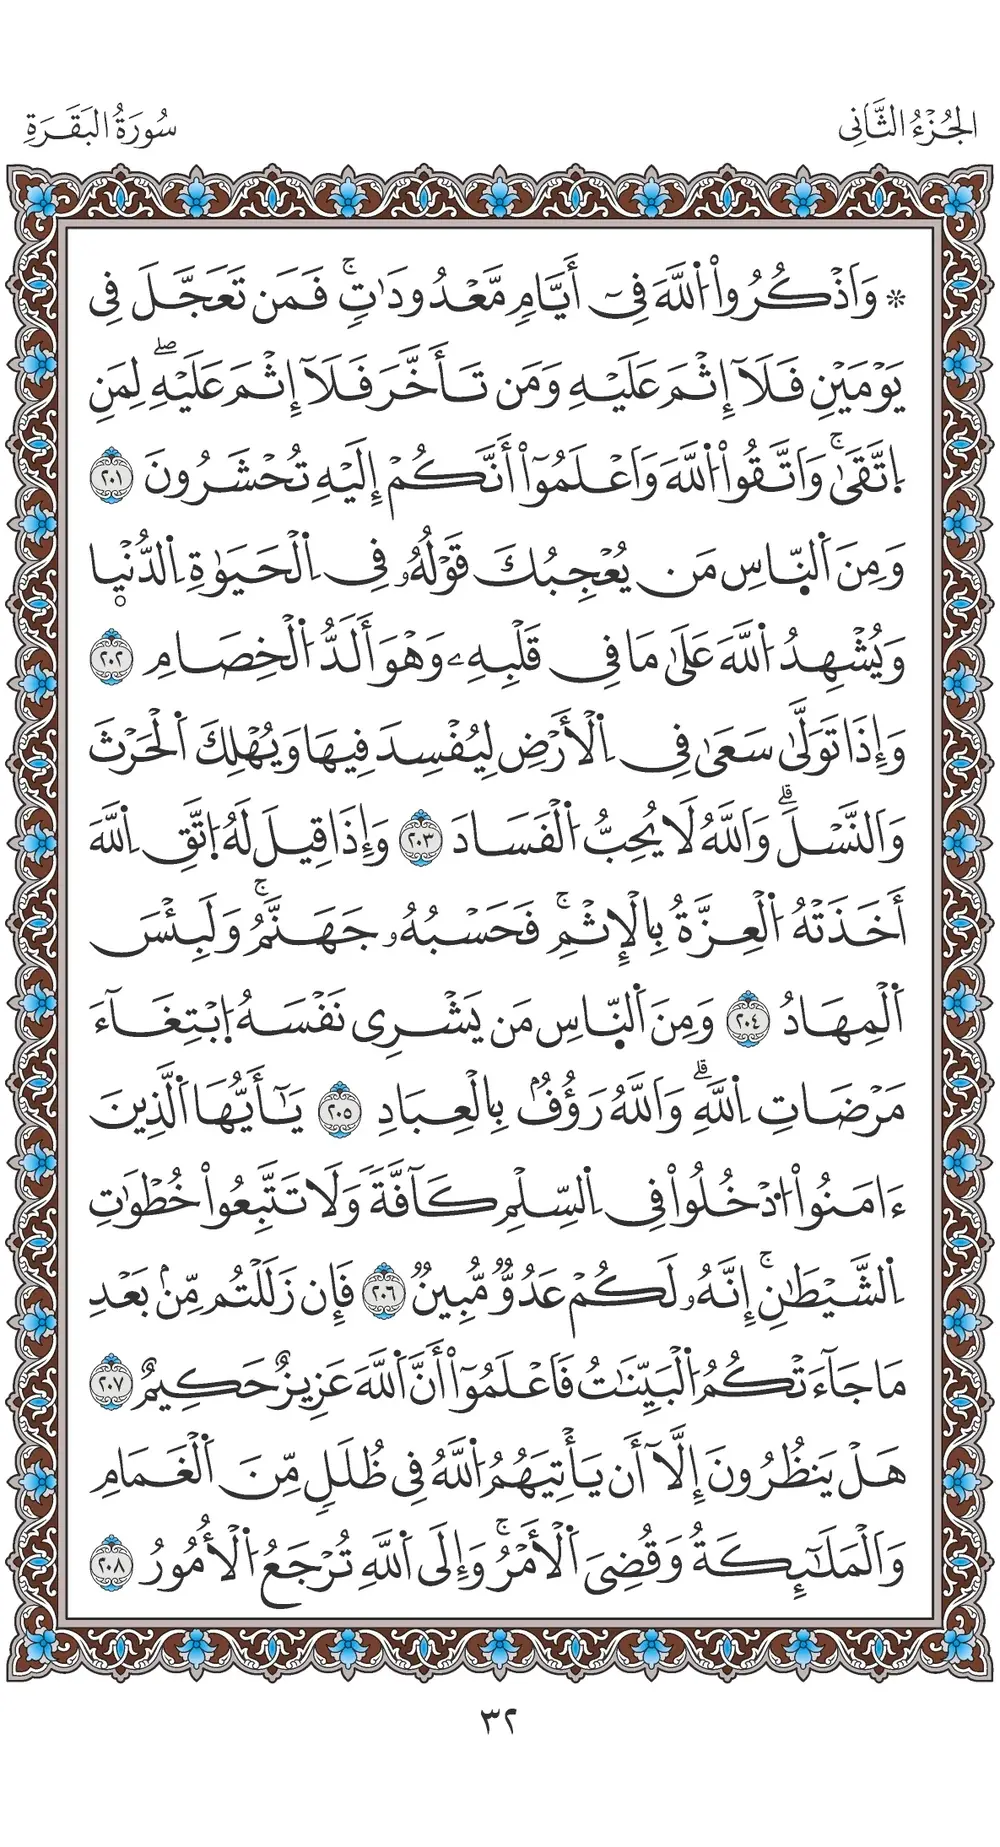 الجُزْءُ الثَّانِي
سُورَةُ البَقَرَةِ
* وَاَذْكُرُواْ اُللَّهَ فِےٓ أَيَّامٖ مَّعْدُودَٰتٖۚ فَمَن تَعَجَّلَ فِے
يَوْمَيْنِ فَلَآ إِثْمَ عَلَيْهِ وَمَن تَأَخَّرَ فَلَآ إِثْمَ عَلَيْهِۖ لِمَنِ
اِتَّقَىٰۚ وَاتَّقُواْ اُللَّهَ وَاعْلَمُوٓاْ أَنَّكُمْ إِلَيْهِ تُحْشَرُونَ ٢٠١
وَمِنَ اَلنَّاسِ مَن يُعْجِبُكَ قَوْلُهُۥ فِے اِلْحَيَوٰةِ اِلدُّنْيٜا
وَيُشْهِدُ اُللَّهَ عَلَىٰ مَا فِے قَلْبِهِۦ وَهْوَ أَلَدُّ اُلْخِصَامِ ٢٠٢
وَإِذَا تَوَلَّىٰ سَعَىٰ فِے اِلْأَرْضِ لِيُفْسِدَ فِيهَا وَيُهْلِكَ اَلْحَرْثَ
وَالنَّسْلَۗ وَاَللَّهُ لَا يُحِبُّ اُلْفَسَادَ ٢٠٣ وَإِذَا قِيلَ لَهُ اُتَّقِ اِللَّهَ
أَخَذَتْهُ اُلْعِزَّةُ بِالْإِثْمِۚ فَحَسْبُهُۥ جَهَنَّمُۚ وَلَبِئْسَ
اَلْمِهَادُ ٢٠٤ وَمِنَ اَلنَّاسِ مَن يَشْرِے نَفْسَهُ اُبْتِغَآءَ
مَرْضَاتِ اِللَّهِۗ وَاَللَّهُ رَؤُفُۢ بِالْعِبَادِ ٢٠٥ يَٰٓأَيُّهَا اَلَّذِينَ
ءَامَنُواْ اُدْخُلُواْ فِے اِلسِّلْمِ كَآفَّةٗ وَلَا تَتَّبِعُواْ خُطْوَٰتِ
اِلشَّيْطَٰنِۚ إِنَّهُۥ لَكُمْ عَدُوّٞ مُّبِينٞ ٢٠٦ فَإِن زَلَلْتُم مِّنۢ بَعْدِ
مَا جَآءَتْكُمُ اُلْبَيِّنَٰتُ فَاعْلَمُوٓاْ أَنَّ اَللَّهَ عَزِيزٌ حَكِيمٌ ٢٠٧
هَلْ يَنظُرُونَ إِلَّآ أَن يَأْتِيَهُمُ اُللَّهُ فِے ظُلَلٖ مِّنَ اَلْغَمَامِ
وَالْمَلَٰٓئِكَةُ وَقُضِيَ اَلْأَمْرُۚ وَإِلَى اَللَّهِ تُرْجَعُ اُلْأُمُورُ ٢٠٨
٣٢